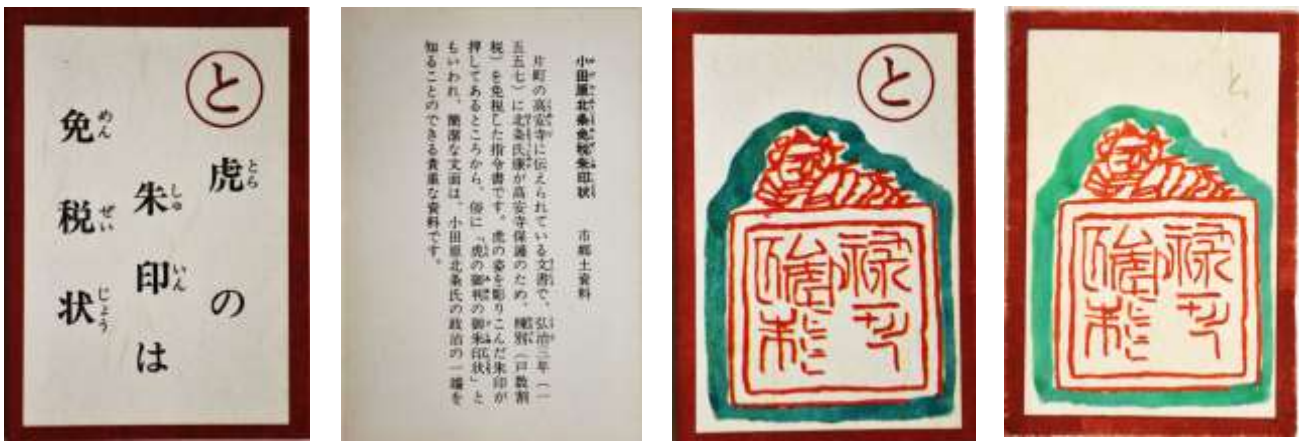 と
虎の
とら
朱印は
しゅいん
免税状
めんぜいじょう
小田原北条免税朱印状 市郷土資料
片町の高安寺に伝えられている文書で、弘治三年（一
五五七）に北条氏康が高安寺保護のため、棟別（戸数割
税）を免税した指令書です。虎の姿を彫りこんだ朱印が
押してあるところから、俗に「虎の御判の御朱印状」と
もいわれ、簡潔な文面は、小田原北条氏の政治の一端を
知ることのできる貴重な資料です。
と
と